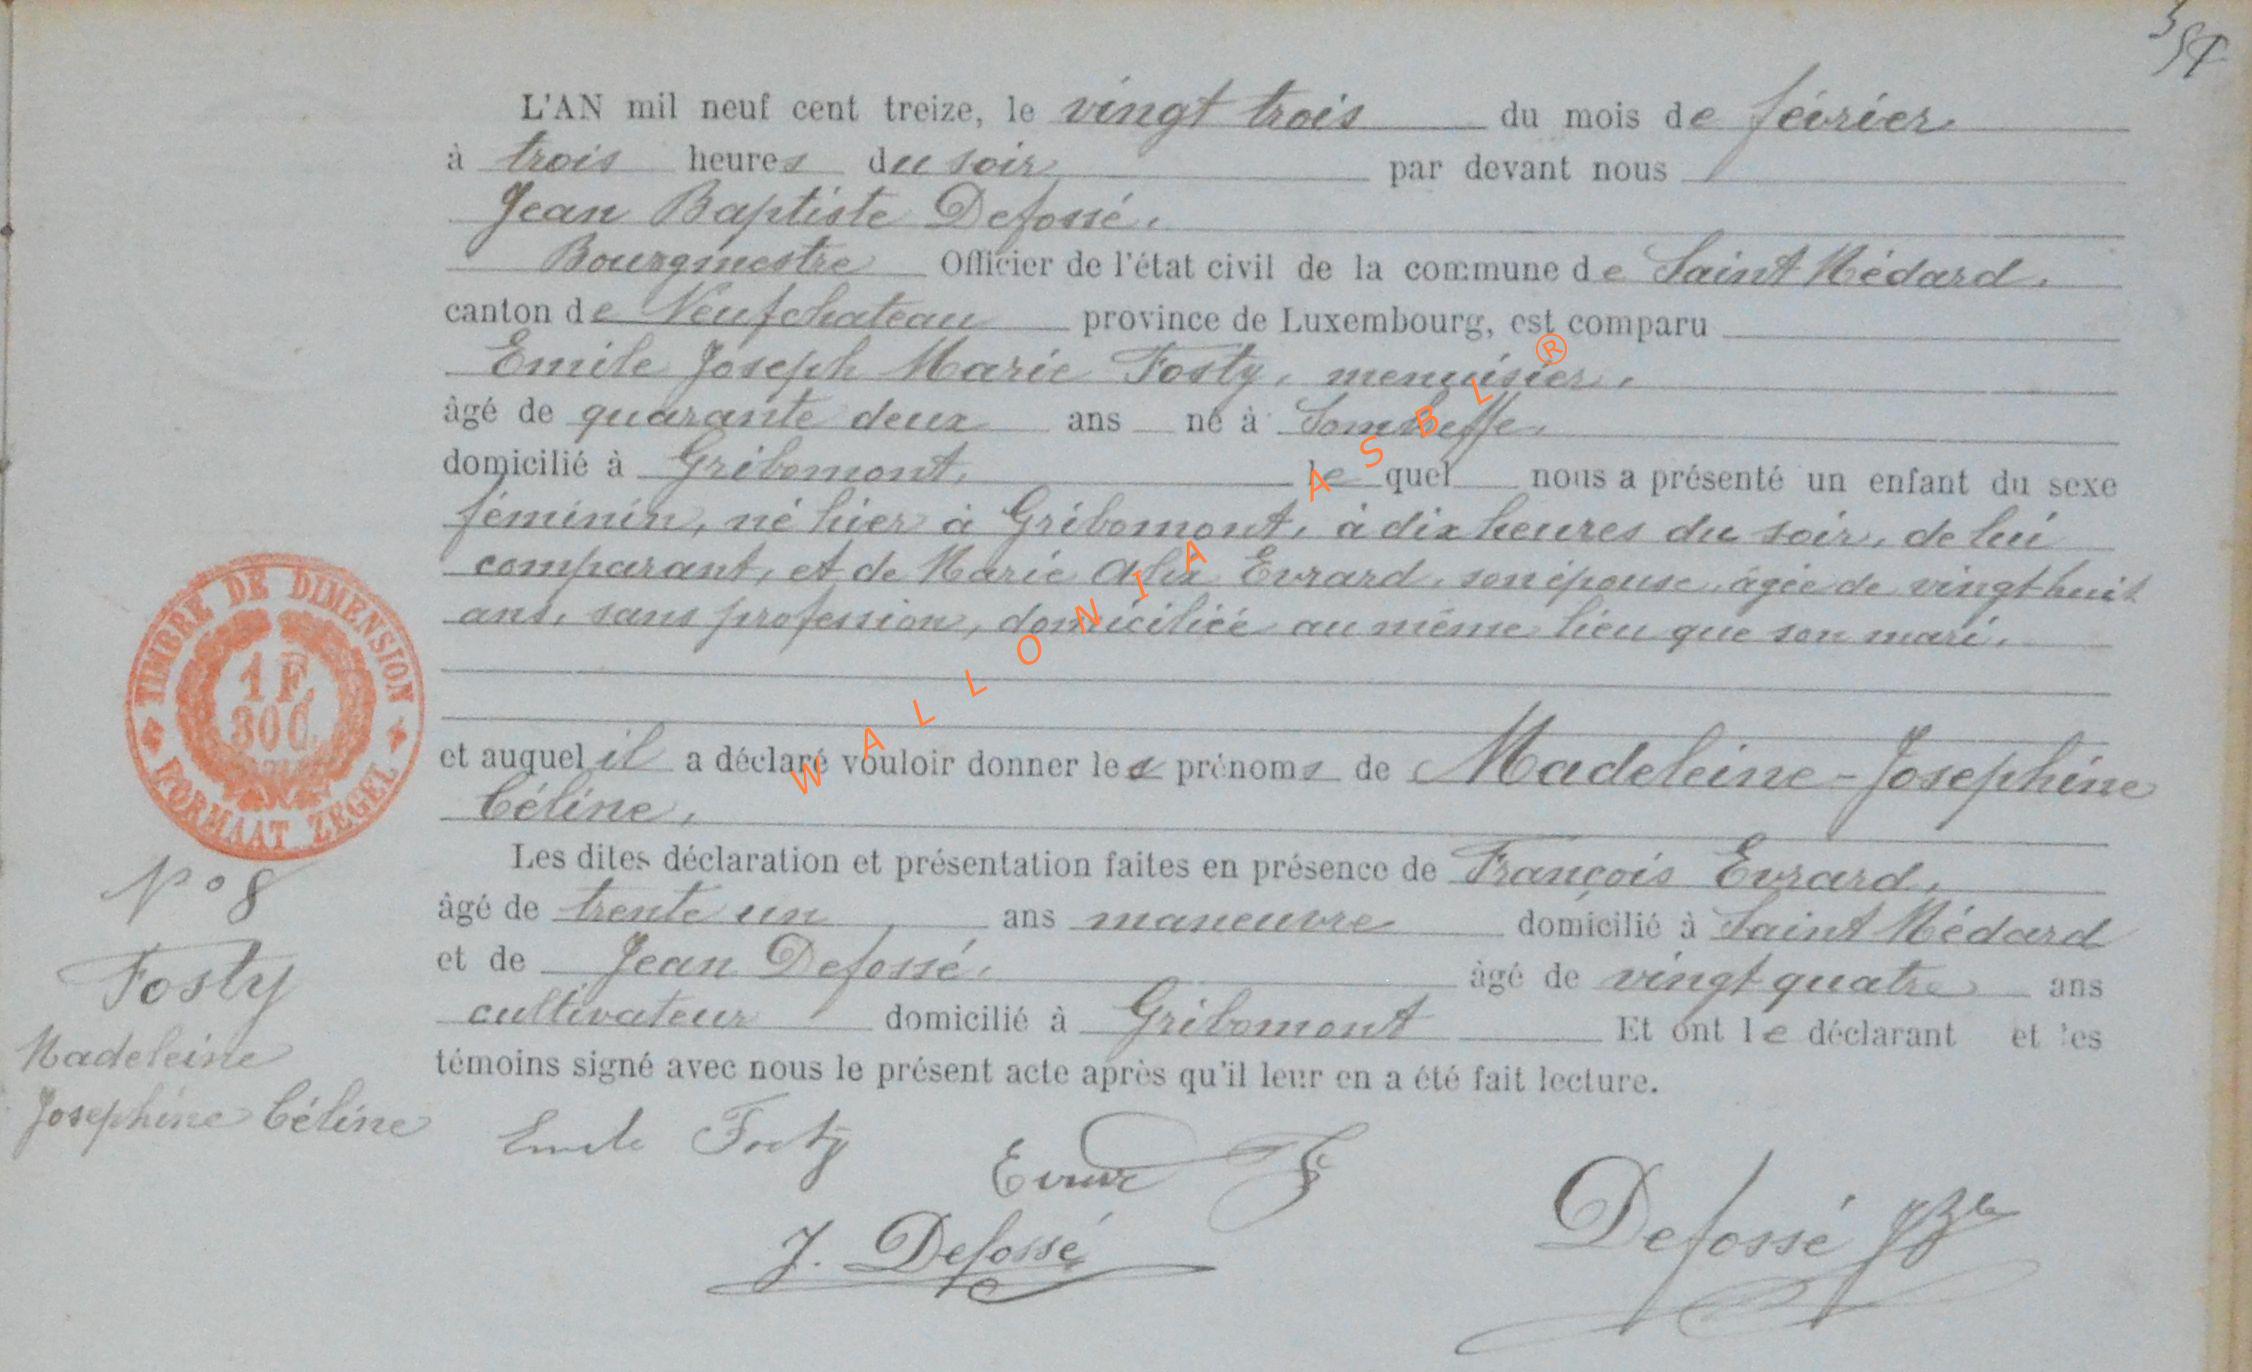 L'AN mil neuf cent treize, le vingt trois du mois de février
à trois heures du soir par devant nous
Jean Baptiste Defossé,
Bourgmestre Officier de l'état civil de la commune de Saint Médard,
canton de Neufchateau province de Luxembourg, est comparu
Emile Joseph Marie Fosty, menuisier,
âgé de quarante deux ans né à Sombreffe,
domicilié à Gribomont, lequel nous a présenté un enfant du sexe
féminin, né hier à Gribomont, à dix heures du soir, de lui
comparant, et de Marie Alix Evrard, son épouse, âgée de vingt huit
ans, sans profession, domiciliée au même lieu que son mari.
et auquel il a déclaré vouloir donner les prénoms de Madeleine-Josephine
Céline,
Les dites déclaration et présentation faites en présence de François Evrard,
âgé de trente un ans maneuvre domicilié à Saint Médard
et de Jean Defossé, âgé de vingt quatre ans
cultivateur domicilié à Gribomont Et ont le déclarant et les
témoins signé avec nous le présent acte après qu'il leur en a été fait lecture.
TIMBRE DE DIMENSION
1 F.
30 C.
FORMAAT ZEGEL
N° 8
Fosty
Madeleine
Josephine Céline
Emile Fosty
J. Defossé
Defossé JBte
WALLONIA ASBL ®